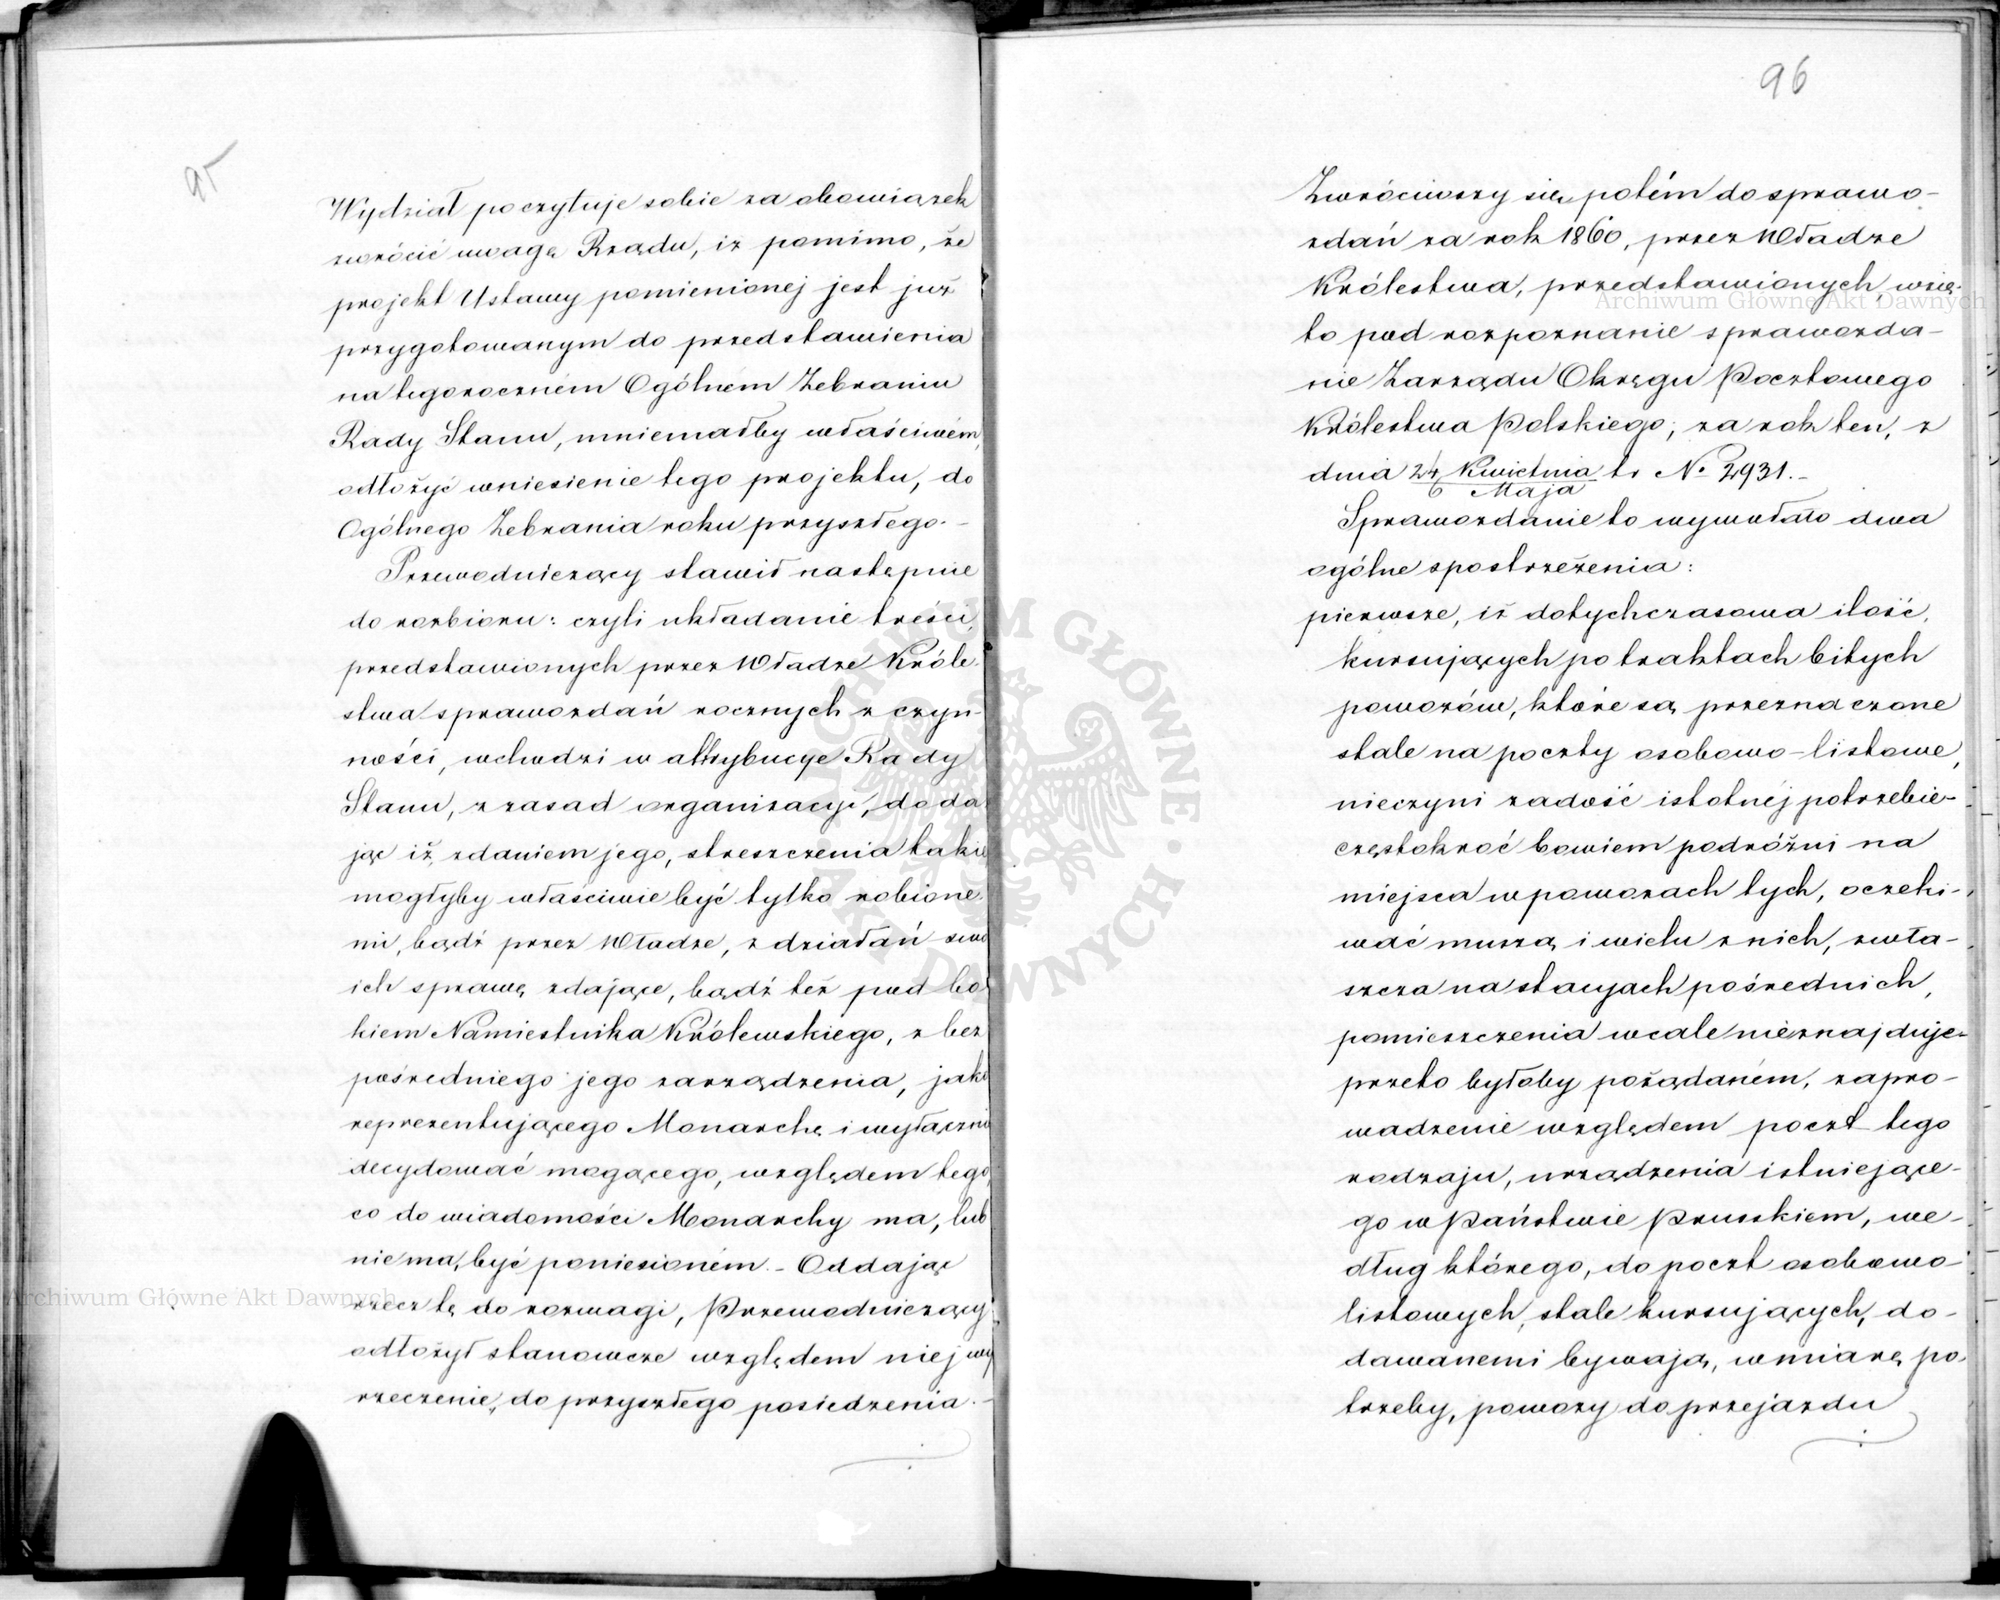 95
Wydział poczytuje sobie za obowiązek
zwrócić uwagę Rządu, iż pomimo, że
projekt Ustawy pomienionej jest już
przygotowanym do przedstawienia
na tegoroczném Ogólnem Zebraniu
Rady Stanu, mniemałby właściwém,
odłożyć wniesienie tego projektu, do
Ogólnego Zebrania roku przyszłego. –
Przewodniczący stawił następnie
do rozbioru: czyli układanie treści,
przedstawionych przez Władze Króle-
stwa sprawozdań rocznych z czyn-
ności, wchodzi w attrybucye Rady
Stanu, z zasad organizacyi, doda
jąc iż, zdaniem jego, streszczenia takie
mogłyby właściwie być tylko robione
mi, bądź przez Władze, z działań swo
ich sprawę zdające, bądź też pod bo
kiem Namiestnika Królewskiego, z bez
pośredniego jego zarządzenia, jako
reprezentującego Monarchę i wyłącznie
decydować mogącego, względem tego,
co do wiadomości Monarchy ma, lub
nie ma, być poniesioném. – Oddając
rzecz tę do rozwagi, Przewodniczący
odłożył stanowcze względem niej wy
rzeczenie, do przyszłego posiedzenia. –
96
Zwróciwszy się, potém do sprawo-
zdań za rok 1860, przez Władze
Królestwa, przedstawionych, wzię-
to pod rozpoznanie sprawozda-
nie Zarządu Okręgu Pocztowego
Królestwa Polskiego, za rok ten, z
dnia 24/6 Kwietnia/Maja tr No 2931. –
Sprawozdanie to wywołało dwa
ogólne spostrzeżenia:
pierwsze, iż dotychczasowa ilość,
kursujących po traktach bitych
powozów, które są przeznaczone
stale na poczty osobowo-listowe,
nieczyni zadość istotnéj potrzebie-
częstokroć bowiem podróżni na
miejsca w powozach tych, oczeki-
wać muszą i wielu z nich, zwła-
szcza na stacyach pośrednich,
pomieszczenia wcale nieznajduje-
przeto byłoby pożądaném, zapro-
wadzenie względem poczt tego
rodzaju, urządzenia istniejące-
go w Państwie Pruskiem, we-
dług którego, do poczt osobowo-
listowych, stale kursujących, do-
dawanemi bywają, w miarę po-
trzeby, powozy do przejazdu
Archiwum Główne Akt Dawnych
Archiwum Główne Akt Dawnych
ARCHIWUM GŁÓWNE · AKT DAWNYCH ·